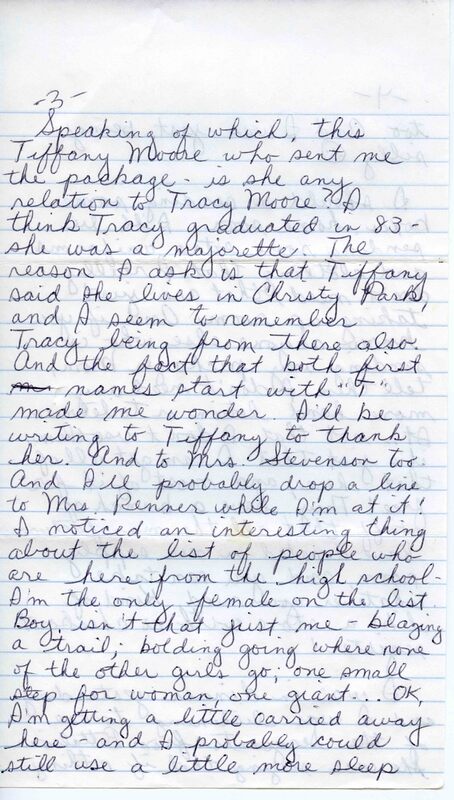 -3-
Speaking of which, this
Tiffany Moore who sent me
the package - is she any
relation to Tracy Moore? I
think Tracy graduated in 83 -
she was a majorette. The
reason I ask is that Tiffany
said she lives in Christy Park,
and I seem to remember
Tracy being from there also.
And the fact that both first
names start with "T"
made me wonder. I'll be
writing to Tiffany to thank
her. And to Mrs. Stevenson too.
And I'll probably drop a line
to Mrs. Penner while I'm at it!
I noticed an interesting thing
about the list of people who
are here from the high school -
I'm the only female on the list.
Boy isn't that just me - blazing
a trail; bolding going where none
of the other girls go; one small
step for woman, one giant... OK,
I'm getting a little carried away
here - and I probably could
still use a little more sleep